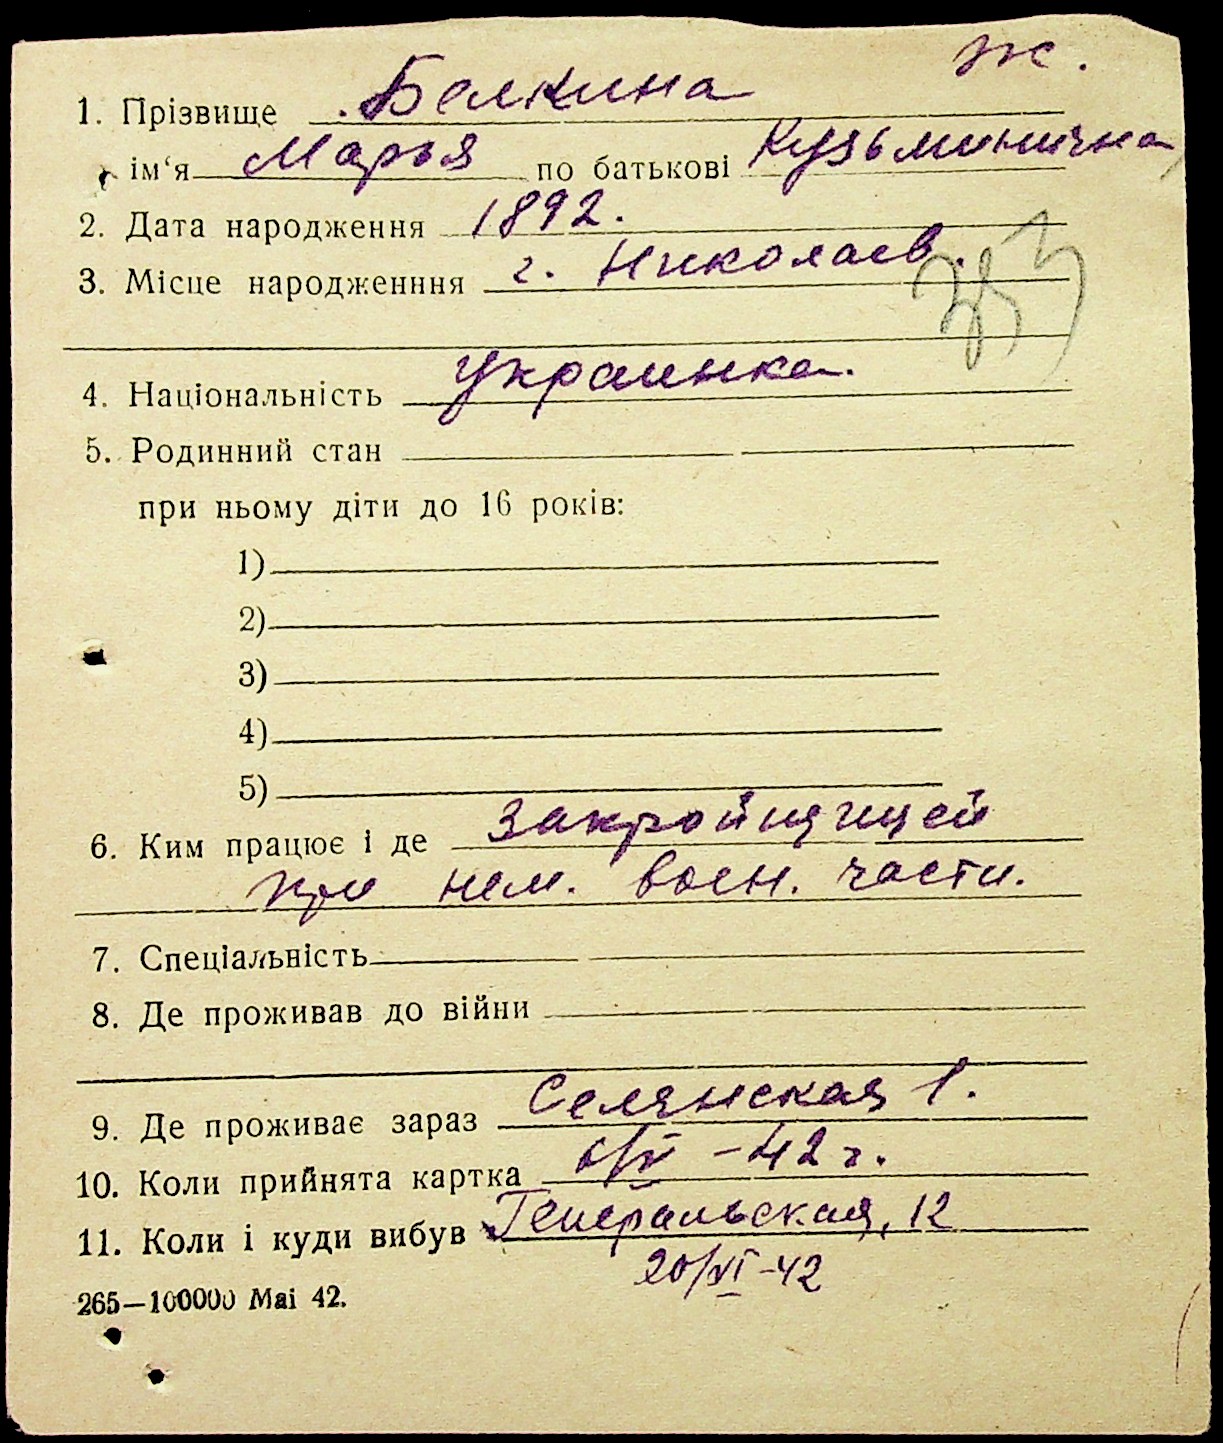 ж.
1. Прізвище Белкина
ім‘я Марья по батькові Кузьминична
2. Дата народження 1892.
3. Місце народженння г. Николаев.
4. Національність украинка.
5. Родинний стан
при ньому діти до 16 років:
1)
2)
3)
4)
5)
6. Ким працює і де закройщицей
при нем. воен. части.
7. Спеціальність
8. Де проживав до війни
9. Де проживає зараз Селянская 1.
10. Коли прийнята картка /V – 42 г.
11. Коли і куди вибув Генеральская, 12
20/VI-42
265—100000 Mai 42.